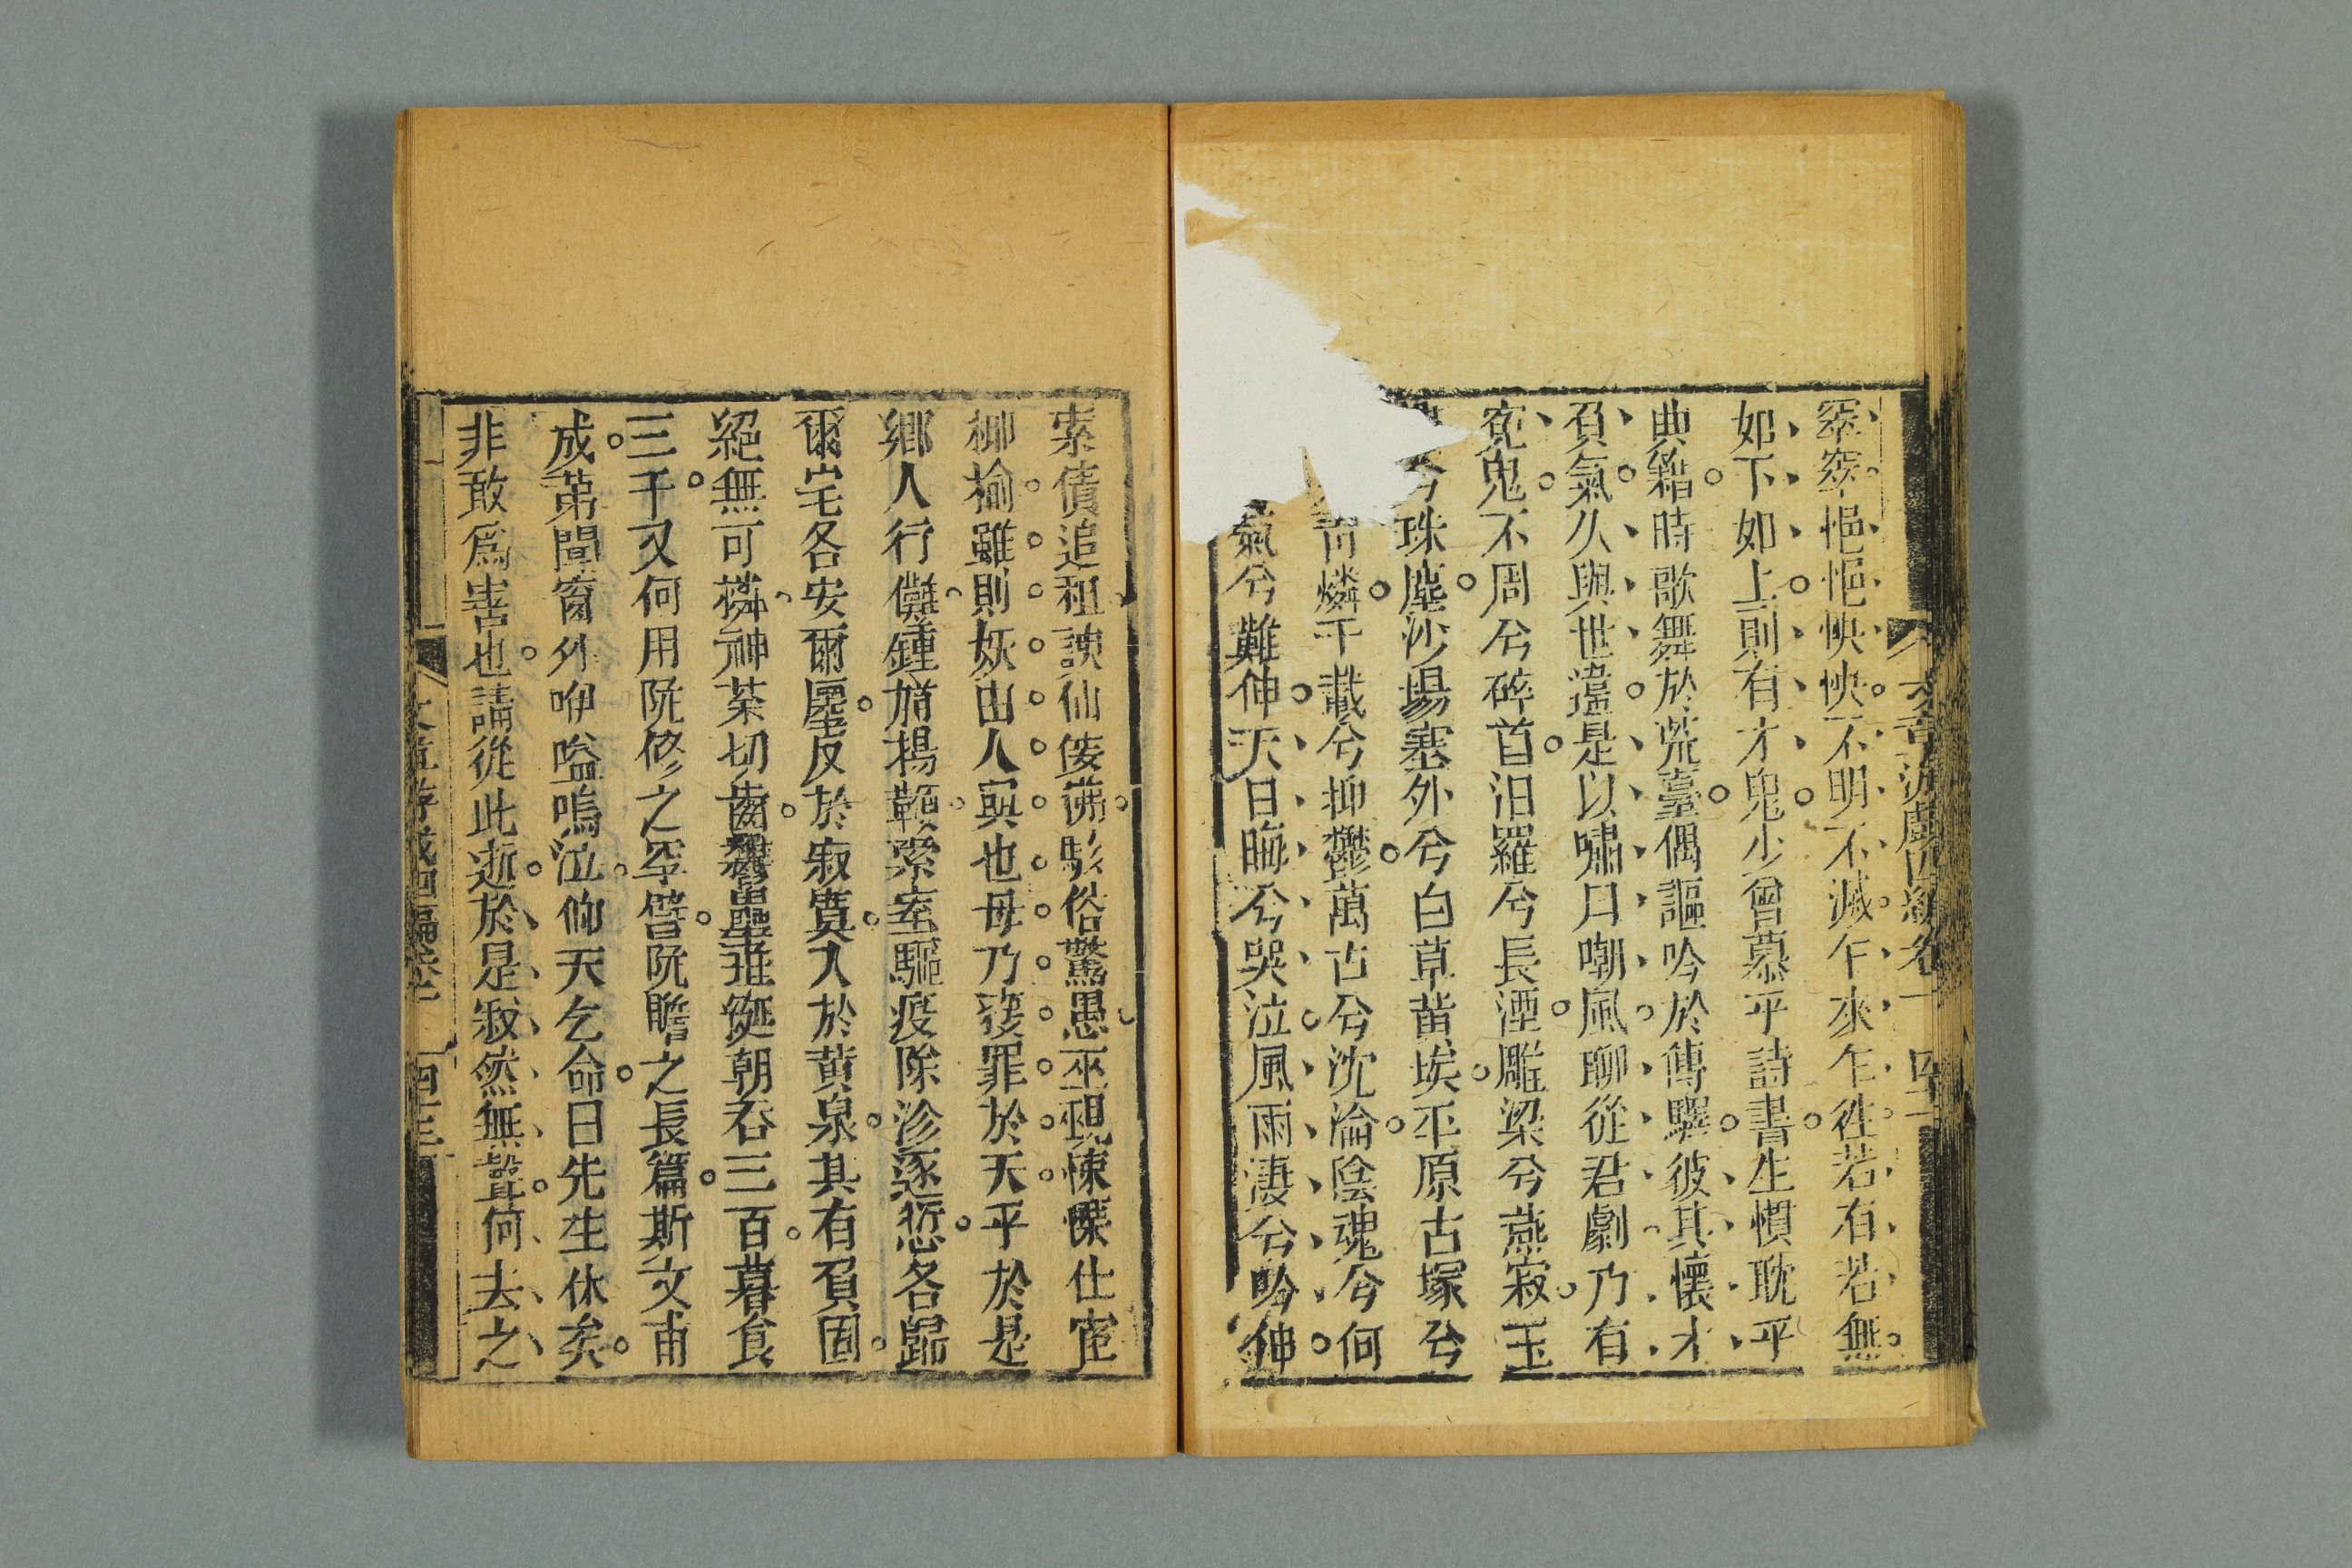 窣窣悒悒怏怏不明不滅乍來乍徃若有若無
如下如上則有才鬼少曾慕乎詩書生慣耽乎
典籍時歌舞於荒臺偶謳吟於傳驛彼其懷才
負氣久與世違是以嘯月嘲風聊從君劇乃有
寃鬼不周兮碎首汨羅兮長湮雕梁兮燕寂玉
兮珠塵沙場塞外兮白草黃埃平原古塚兮
青燐千載兮抑鬱萬古兮沈淪陰魂兮何
氣兮難伸天日晦兮哭泣風雨淒兮吟伸
文章游戲四編卷一 四十二
索債追租諛仙佞彿駭俗驚愚巫覡悚慄仕宦
揶揄雖則妖由人興也毋乃獲罪於天乎於是
鄉人行儺鍾馗揚鞭索室驅疫除沴逐愆各歸
爾宅各安爾廛反於寂寞入於黃泉其有頑固
絕無可憐神荼切齒鬱壘垂涎朝吞三百暮食
三千又何用阮修之罕譬阮瞻之長篇斯文甫
成第聞窗外咿嗌嗚泣仰天乞命曰先生休矣
非敢爲害也請從此逝於是寂然無聲何去之
文章游戲四編卷一 四十三